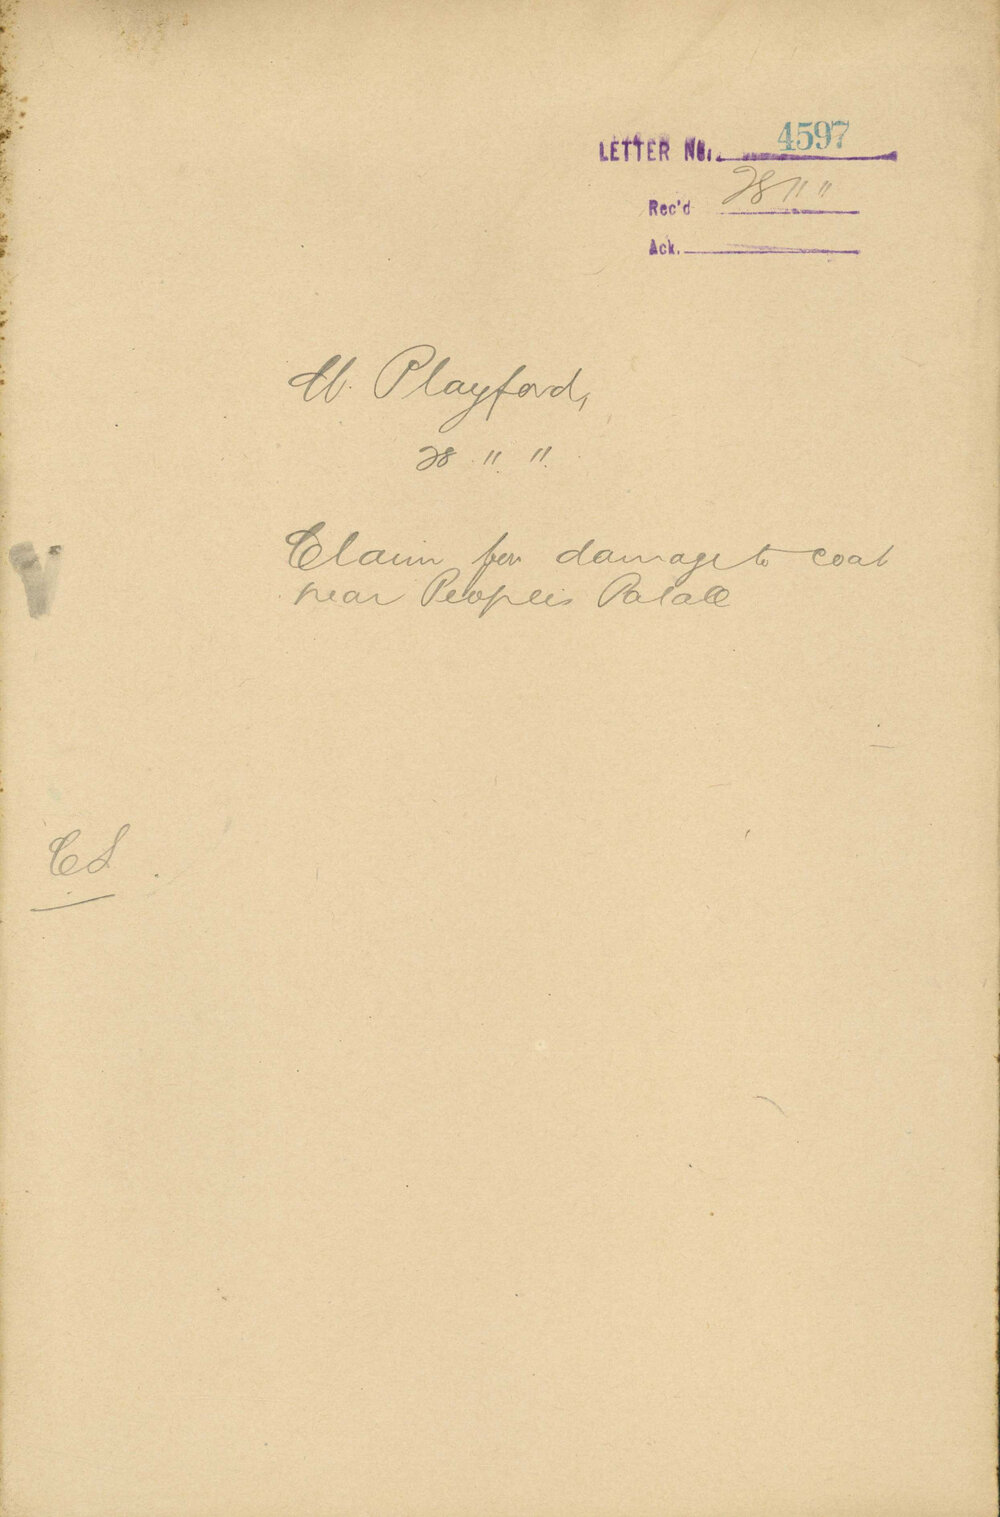 LETTER No. 4597
Rec'd 28 " "
Ack.
M. Playford,
28 " "
Claim for damage to coat
near Peoples Palace
CS